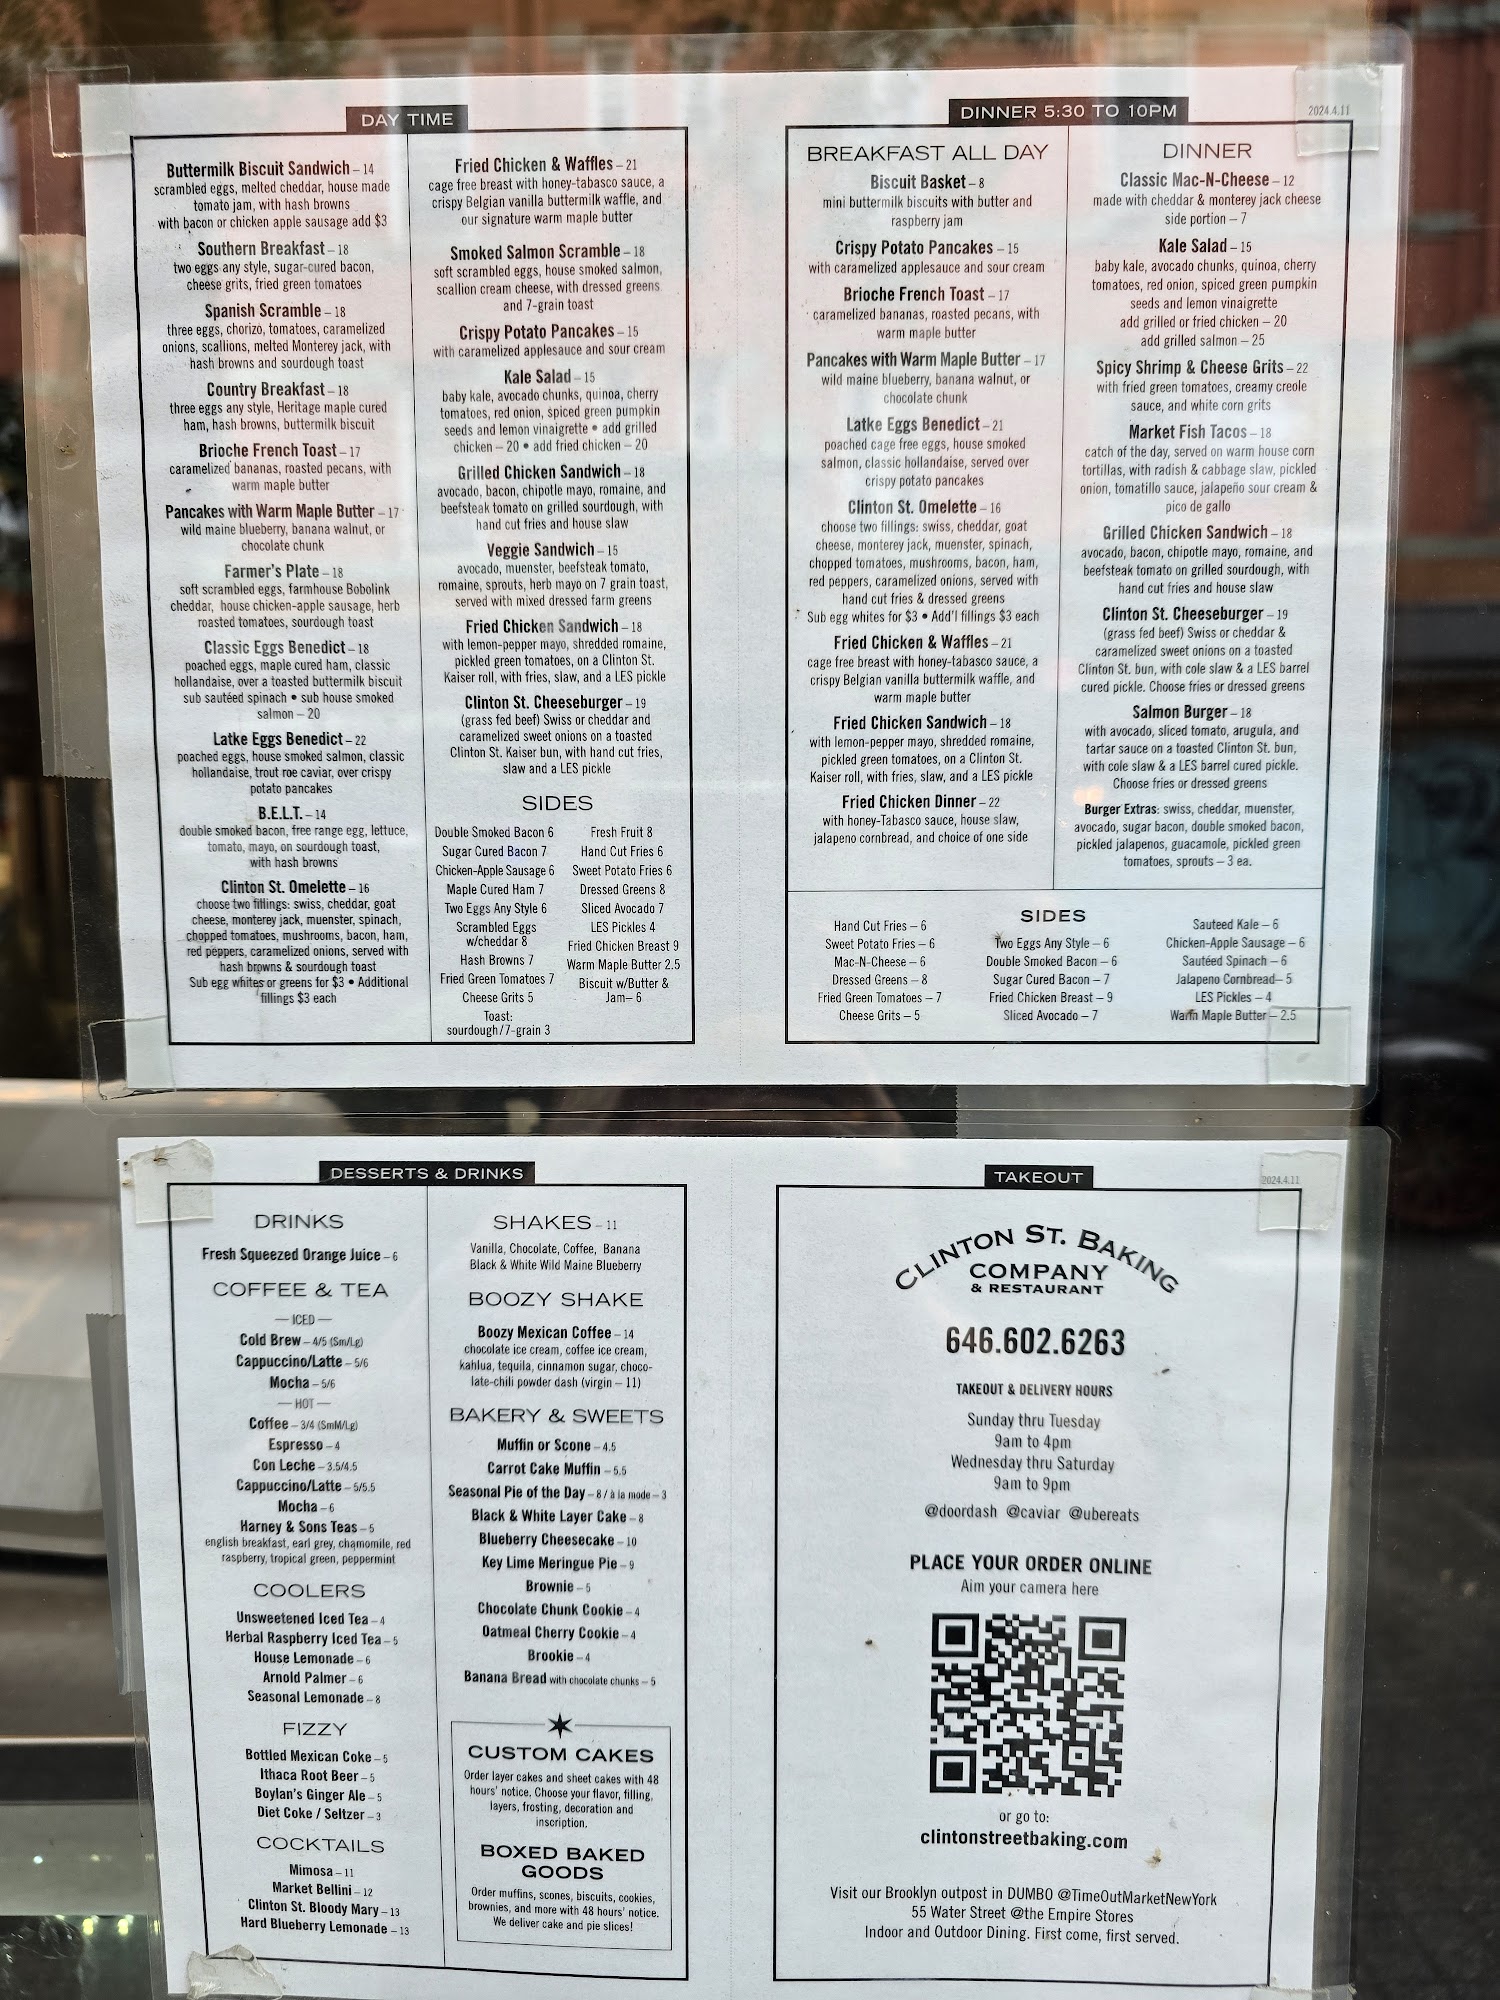 DAY TIME
Buttermilk Biscuit Sandwich – 14
scrambled eggs, melted cheddar, house made
tomato jam, with hash browns
with bacon or chicken apple sausage add $3
Southern Breakfast – 18
two eggs any style, sugar-cured bacon,
cheese grits, fried green tomatoes
Spanish Scramble – 18
three eggs, chorizo, tomatoes, caramelized
onions, scallions, melted Monterey jack, with
hash browns and sourdough toast
Country Breakfast – 18
three eggs any style, Heritage maple cured
ham, hash browns, buttermilk biscuit
Brioche French Toast – 17
caramelized bananas, roasted pecans, with
warm maple butter
Pancakes with Warm Maple Butter – 17
wild maine blueberry, banana walnut, or
chocolate chunk
Farmer's Plate – 18
soft scrambled eggs, farmhouse Bobolink
cheddar, house chicken-apple sausage, herb
roasted tomatoes, sourdough toast
Classic Eggs Benedict – 18
poached eggs, maple cured ham, classic
hollandaise, over a toasted buttermilk biscuit
sub sautéed spinach • sub house smoked
salmon – 20
Latke Eggs Benedict – 22
poached eggs, house smoked salmon, classic
hollandaise, trout roe caviar, over crispy
potato pancakes
B.E.L.T. – 14
double smoked bacon, free range egg, lettuce,
tomato, mayo, on sourdough toast,
with hash browns
Clinton St. Omelette – 16
choose two fillings: swiss, cheddar, goat
cheese, monterey jack, muenster, spinach,
chopped tomatoes, mushrooms, bacon, ham,
red peppers, caramelized onions, served with
hash browns & sourdough toast
Sub egg whites or greens for $3 • Additional
fillings $3 each
Fried Chicken & Waffles – 21
cage free breast with honey-tabasco sauce, a
crispy Belgian vanilla buttermilk waffle, and
our signature warm maple butter
Smoked Salmon Scramble – 18
soft scrambled eggs, house smoked salmon,
scallion cream cheese, with dressed greens
and 7-grain toast
Crispy Potato Pancakes – 15
with caramelized applesauce and sour cream
Kale Salad – 15
baby kale, avocado chunks, quinoa, cherry
tomatoes, red onion, spiced green pumpkin
seeds and lemon vinaigrette • add grilled
chicken – 20 • add fried chicken – 20
Grilled Chicken Sandwich – 18
avocado, bacon, chipotle mayo, romaine, and
beefsteak tomato on grilled sourdough, with
hand cut fries and house slaw
Veggie Sandwich – 15
avocado, muenster, beefsteak tomato,
romaine, sprouts, herb mayo on 7 grain toast,
served with mixed dressed farm greens
Fried Chicken Sandwich – 18
with lemon-pepper mayo, shredded romaine,
pickled green tomatoes, on a Clinton St.
Kaiser roll, with fries, slaw, and a LES pickle
Clinton St. Cheeseburger – 19
(grass fed beef) Swiss or cheddar and
caramelized sweet onions on a toasted
Clinton St. Kaiser bun, with hand cut fries,
slaw and a LES pickle
SIDES
Double Smoked Bacon 6
Sugar Cured Bacon 7
Chicken-Apple Sausage 6
Maple Cured Ham 7
Two Eggs Any Style 6
Scrambled Eggs
w/cheddar 8
Hash Browns 7
Fried Green Tomatoes 7
Cheese Grits 5
Toast:
sourdough/7-grain 3
Fresh Fruit 8
Hand Cut Fries 6
Sweet Potato Fries 6
Dressed Greens 8
Sliced Avocado 7
LES Pickles 4
Fried Chicken Breast 9
Warm Maple Butter 2.5
Biscuit w/Butter &
Jam– 6
DINNER 5:30 TO 10PM
2024.4.11
BREAKFAST ALL DAY
Biscuit Basket – 8
mini buttermilk biscuits with butter and
raspberry jam
Crispy Potato Pancakes – 15
with caramelized applesauce and sour cream
Brioche French Toast – 17
caramelized bananas, roasted pecans, with
warm maple butter
Pancakes with Warm Maple Butter – 17
wild maine blueberry, banana walnut, or
chocolate chunk
Latke Eggs Benedict – 21
poached cage free eggs, house smoked
salmon, classic hollandaise, served over
crispy potato pancakes
Clinton St. Omelette – 16
choose two fillings: swiss, cheddar, goat
cheese, monterey jack, muenster, spinach,
chopped tomatoes, mushrooms, bacon, ham,
red peppers, caramelized onions, served with
hand cut fries & dressed greens
Sub egg whites for $3 • Add'l fillings $3 each
Fried Chicken & Waffles – 21
cage free breast with honey-tabasco sauce, a
crispy Belgian vanilla buttermilk waffle, and
warm maple butter
Fried Chicken Sandwich – 18
with lemon-pepper mayo, shredded romaine,
pickled green tomatoes, on a Clinton St.
Kaiser roll, with fries, slaw, and a LES pickle
Fried Chicken Dinner – 22
with honey-Tabasco sauce, house slaw,
jalapeno cornbread, and choice of one side
DINNER
Classic Mac-N-Cheese – 12
made with cheddar & monterey jack cheese
side portion – 7
Kale Salad – 15
baby kale, avocado chunks, quinoa, cherry
tomatoes, red onion, spiced green pumpkin
seeds and lemon vinaigrette
add grilled or fried chicken – 20
add grilled salmon – 25
Spicy Shrimp & Cheese Grits – 22
with fried green tomatoes, creamy creole
sauce, and white corn grits
Market Fish Tacos – 18
catch of the day, served on warm house corn
tortillas, with radish & cabbage slaw, pickled
onion, tomatillo sauce, jalapeño sour cream &
pico de gallo
Grilled Chicken Sandwich – 18
avocado, bacon, chipotle mayo, romaine, and
beefsteak tomato on grilled sourdough, with
hand cut fries and house slaw
Clinton St. Cheeseburger – 19
(grass fed beef) Swiss or cheddar &
caramelized sweet onions on a toasted
Clinton St. bun, with cole slaw & a LES barrel
cured pickle. Choose fries or dressed greens
Salmon Burger – 18
with avocado, sliced tomato, arugula, and
tartar sauce on a toasted Clinton St. bun,
with cole slaw & a LES barrel cured pickle.
Choose fries or dressed greens
Burger Extras: swiss, cheddar, muenster,
avocado, sugar bacon, double smoked bacon,
pickled jalapenos, guacamole, pickled green
tomatoes, sprouts – 3 ea.
SIDES
Hand Cut Fries – 6
Sweet Potato Fries – 6
Mac-N-Cheese – 6
Dressed Greens – 8
Fried Green Tomatoes – 7
Cheese Grits – 5
Two Eggs Any Style – 6
Double Smoked Bacon – 6
Sugar Cured Bacon – 7
Fried Chicken Breast – 9
Sliced Avocado – 7
Sauteed Kale – 6
Chicken-Apple Sausage – 6
Sautéed Spinach – 6
Jalapeno Cornbread– 5
LES Pickles – 4
Warm Maple Butter – 2.5
DESSERTS & DRINKS
DRINKS
Fresh Squeezed Orange Juice – 6
COFFEE & TEA
— ICED —
Cold Brew – 4/5 (Sm/Lg)
Cappuccino/Latte – 5/6
Mocha – 5/6
— HOT —
Coffee – 3/4 (SmM/Lg)
Espresso – 4
Con Leche – 3.5/4.5
Cappuccino/Latte – 5/5.5
Mocha – 6
Harney & Sons Teas – 5
english breakfast, earl grey, chamomile, red
raspberry, tropical green, peppermint
COOLERS
Unsweetened Iced Tea – 4
Herbal Raspberry Iced Tea – 5
House Lemonade – 6
Arnold Palmer – 6
Seasonal Lemonade – 8
FIZZY
Bottled Mexican Coke – 5
Ithaca Root Beer – 5
Boylan's Ginger Ale – 5
Diet Coke / Seltzer – 3
COCKTAILS
Mimosa – 11
Market Bellini – 12
Clinton St. Bloody Mary – 13
Hard Blueberry Lemonade – 13
SHAKES – 11
Vanilla, Chocolate, Coffee, Banana
Black & White Wild Maine Blueberry
BOOZY SHAKE
Boozy Mexican Coffee – 14
chocolate ice cream, coffee ice cream,
kahlua, tequila, cinnamon sugar, choco-
late-chili powder dash (virgin – 11)
BAKERY & SWEETS
Muffin or Scone – 4.5
Carrot Cake Muffin – 5.5
Seasonal Pie of the Day – 8 / à la mode – 3
Black & White Layer Cake – 8
Blueberry Cheesecake – 10
Key Lime Meringue Pie – 9
Brownie – 5
Chocolate Chunk Cookie – 4
Oatmeal Cherry Cookie – 4
Brookie – 4
Banana Bread with chocolate chunks – 5
CUSTOM CAKES
Order layer cakes and sheet cakes with 48
hours' notice. Choose your flavor, filling,
layers, frosting, decoration and
inscription.
BOXED BAKED
GOODS
Order muffins, scones, biscuits, cookies,
brownies, and more with 48 hours' notice.
We deliver cake and pie slices!
TAKEOUT
2024.4.11
CLINTON ST. BAKING
COMPANY
& RESTAURANT
646.602.6263
TAKEOUT & DELIVERY HOURS
Sunday thru Tuesday
9am to 4pm
Wednesday thru Saturday
9am to 9pm
@doordash @caviar @ubereats
PLACE YOUR ORDER ONLINE
Aim your camera here
or go to:
clintonstreetbaking.com
Visit our Brooklyn outpost in DUMBO @TimeOutMarketNewYork
55 Water Street @the Empire Stores
Indoor and Outdoor Dining. First come, first served.